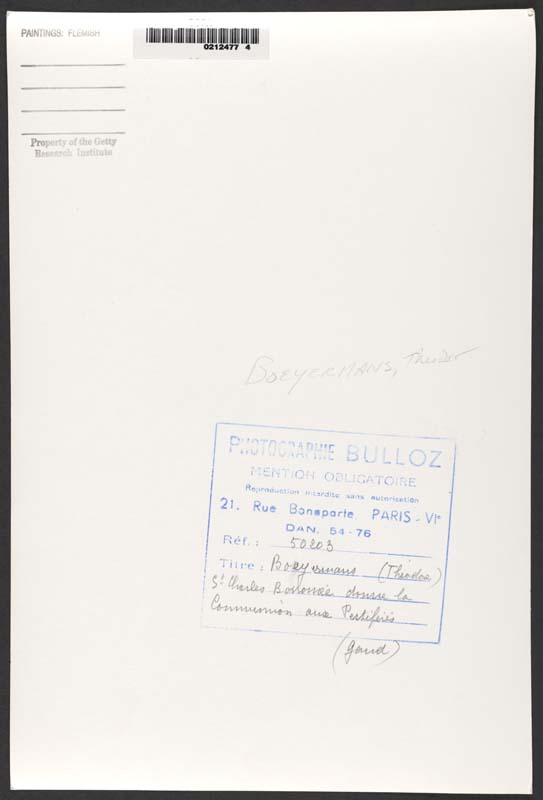 PAINTINGS: FLEMISH
0212477 4
Property of the Getty
Research Institute
BOEYERMANS, Theodor
PHOTOGRAPHIE BULLOZ
MENTION OBLIGATOIRE
Reproduction interdite sans autorisation
21, Rue Bonaparte, PARIS - VIe
DAN. 54-76
Réf.: 50203
Titre: Boeyermans (Théodore)
St Charles Borromée donne la
Communion aux Pestiférés
(Gand)